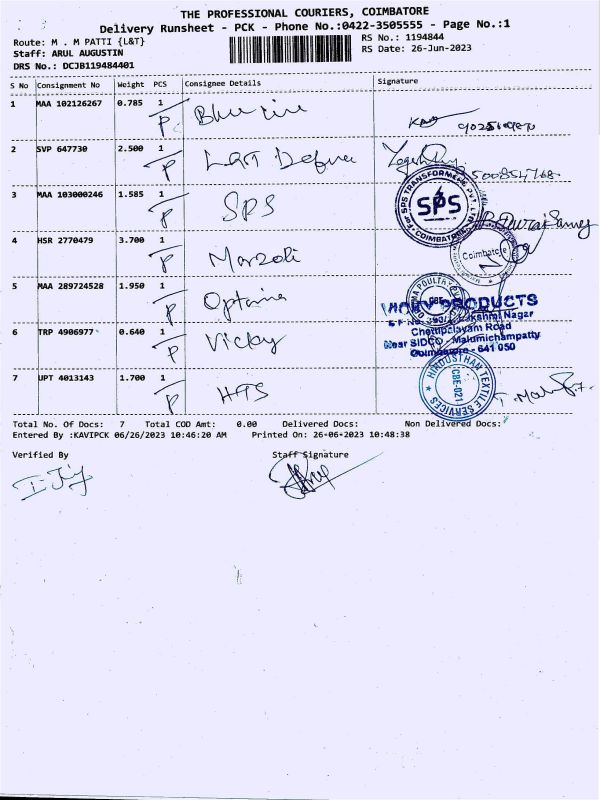 THE PROFESSIONAL COURIERS, COIMBATORE
Delivery Runsheet - PCK - Phone No.:0422-3505555 - Page No.:1
Route: M . M PATTI {L&T}
RS No.: 1194844
Staff: ARUL AUGUSTIN
RS Date: 26-Jun-2023
DRS No.: DCJB119484401
S No Consignment No Weight PCS Consignee Details Signature
1 MAA 102126267 0.785 1
P
2 SVP 647730 2.500 1 L&T Defence
P
3 MAA 103000246 1.585 1 SPS
P
For SPS TRANSFORMERS PVT. LTD.
SPS
COIMBATORE
4 HSR 2770479 3.700 1 Marzoli
P
Coimbatore
5 MAA 289724528 1.950 1
P
CBE
VICKY PRODUCTS
Lakshmi Nagar
6 TRP 4906977 0.640 1 Vicky
P
Chettipalayam Road
Near SIDCO, Malumichampatty
Coimbatore - 641 050
7 UPT 4013143 1.700 1 HTS
P
HINDUSTHAN TEXTILE SERVICES
CBE-021
Total No. Of Docs: 7 Total COD Amt: 0.00 Delivered Docs: Non Delivered Docs:
Entered By :KAVIPCK 06/26/2023 10:46:20 AM Printed On: 26-06-2023 10:48:38
Verified By Staff Signature